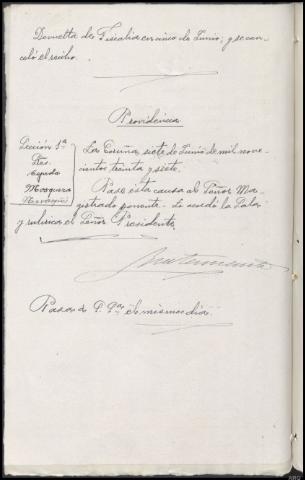 Devuelta de Fiscalia en cinco de Junio; y se can-
celó el recibo.
Providencia
Sección 1ª
Sres.
Cepeda
Mosquera
La Coruña, siete de Junio de mil nove-
cientos treinta y siete.
Pase esta causa al Señor Ma-
gistrado ponente. Lo acordó la Sala
y rubrica el Señor Presidente,
Pasa a P. Pª el mismo dia.